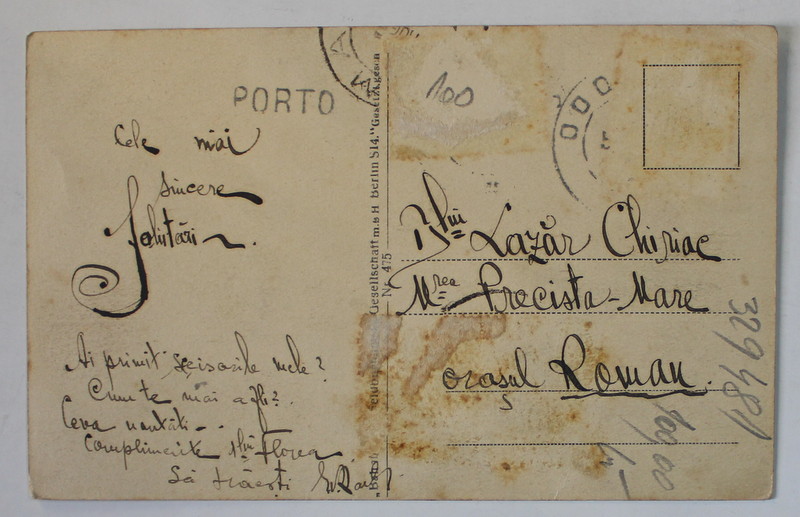 PORTO
Cele mai
sincere
salutări
Ai primit scisorile mele?
Cum te mai afli?
Ceva noutăti
Complimente
Florea
Să trăești
Gesellschaft m.b.H. Berlin S14. "Gesetzl. gesch
Nr. 475
100
Dlui Lazăr Chiriac
Mrea Precista-Mare
orașul Roman.
329481